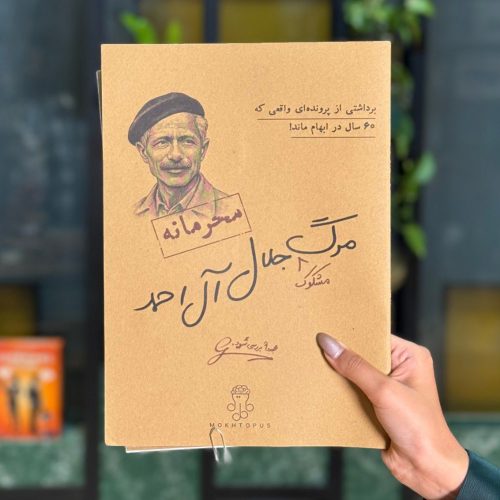 برداشتی از پرونده‌ای واقعی که
۶۰ سال در ابهام ماند!
محرمانه
مرگ جلال آل احمد
مشکوک
MOKHTOPUS